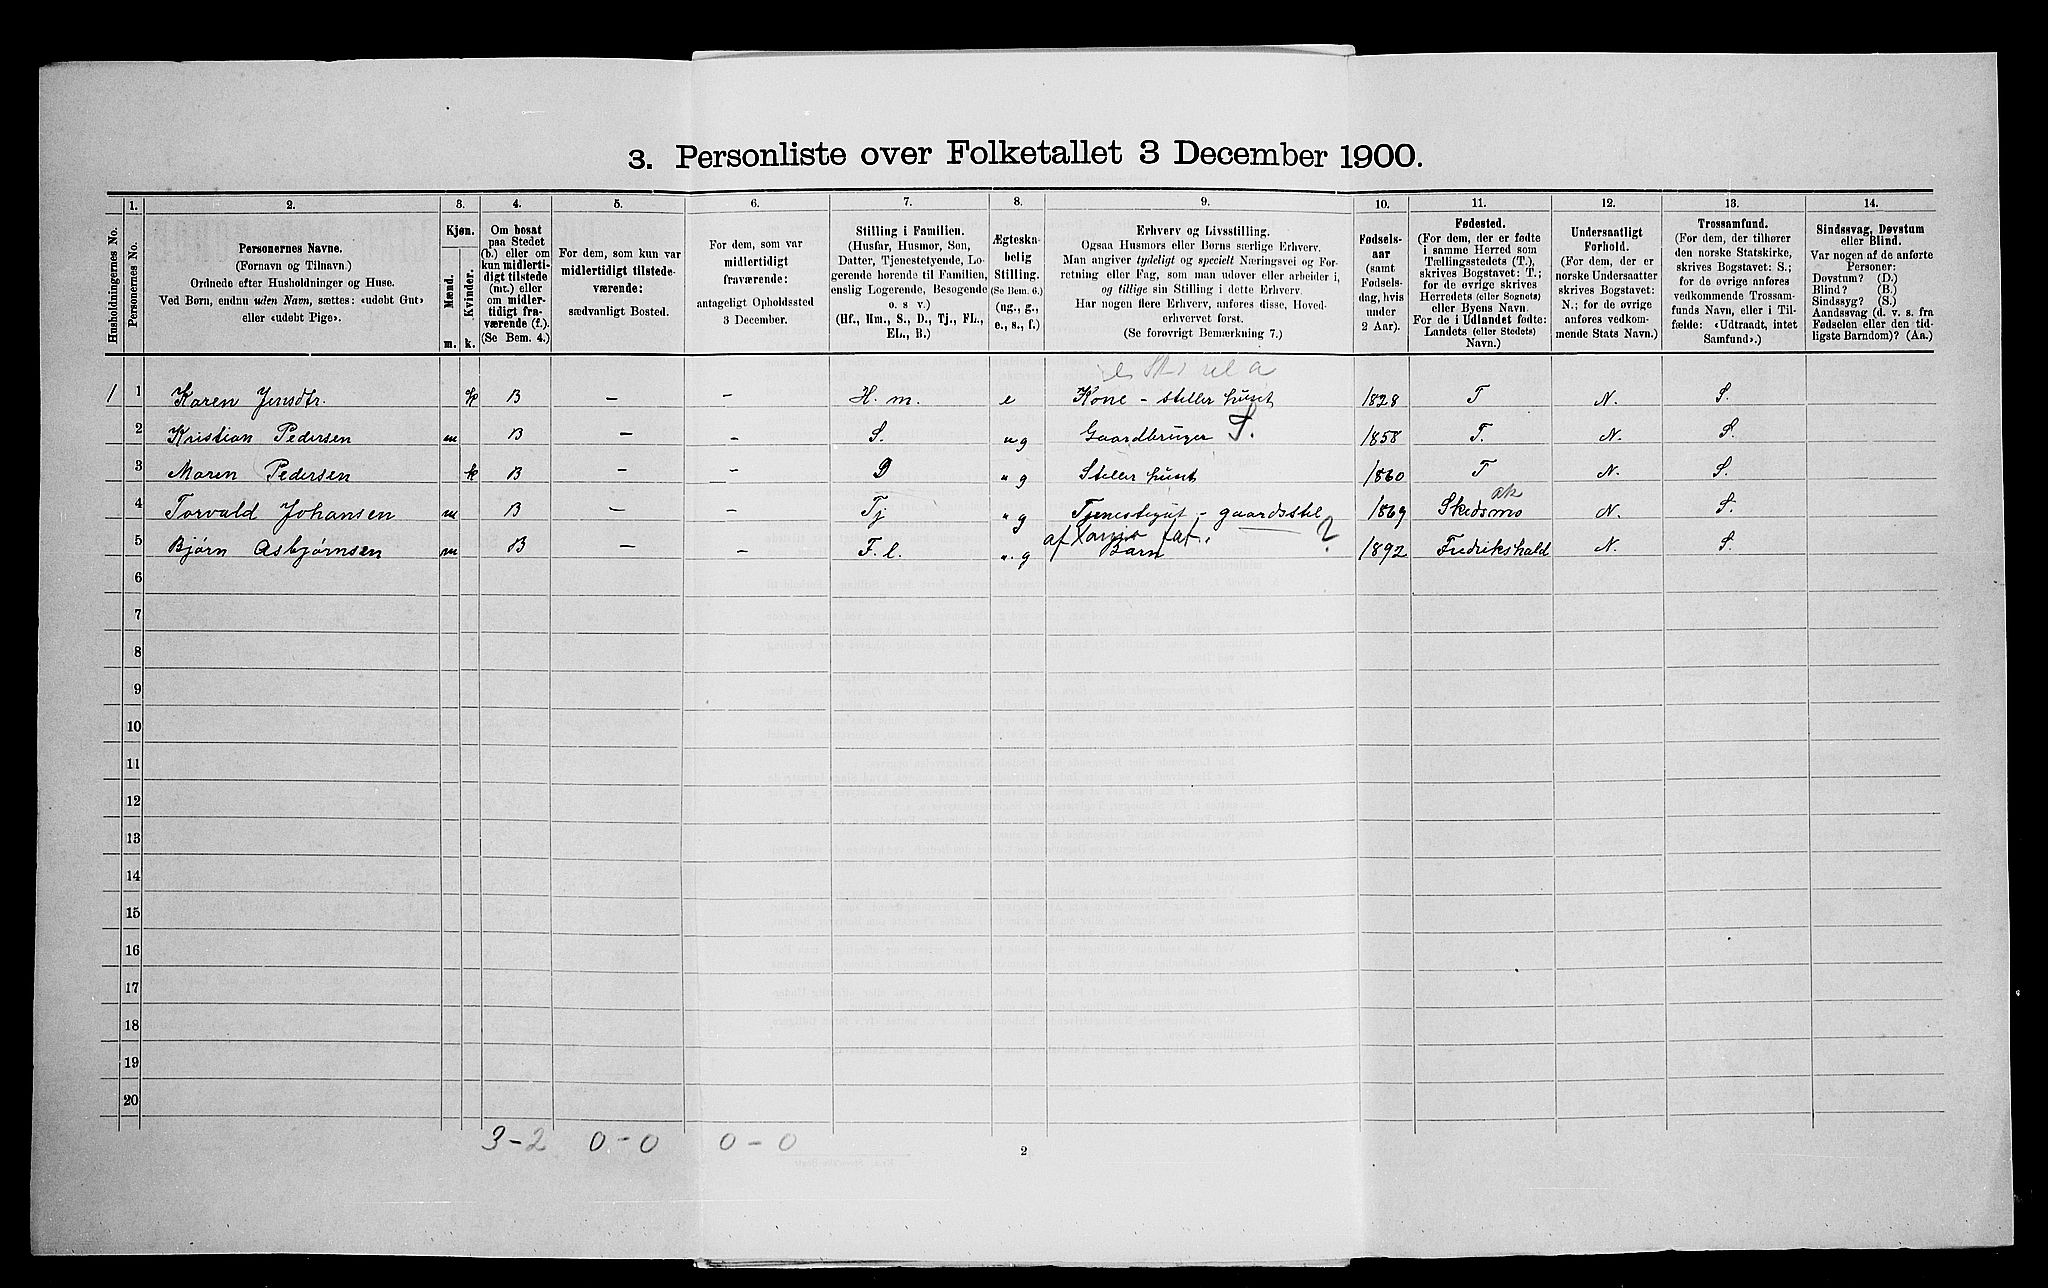 3. Personliste over Folketallet 3 December 1900.
1. 2. 3. 4. 5. 6. 7. 8. 9. 10. 11. 12. 13. 14.
Husholdningernes No.
Personernes No.
Personernes Navne.
(Fornavn og Tilnavn.)
Ordnede efter Husholdninger og Huse.
Ved Børn, endnu uden Navn, sættes: «udøbt Gut»
eller «udøbt Pige».
Kjøn.
Mænd.
Kvinder.
m. k.
Om bosat
paa Stedet
(b.) eller om
kun midlerti-
digt tilstede
(mt.) eller
om midler-
tidigt fra-
værende (f.).
(Se Bem. 4.)
For dem, som kun var
midlertidigt tilstede-
værende:
sædvanligt Bosted.
For dem, som var
midlertidigt
fraværende:
antageligt Opholdssted
3 December.
Stilling i Familien.
(Husfar, Husmor, Søn,
Datter, Tjenestetyende, Lo-
gerende hørende til Familien,
enslig Logerende, Besøgende
o. s v.)
(Hf., Hm., S., D., Tj., FL.,
EL., B.)
Ægteska-
belig
Stilling.
(Se Bem. 6.)
(ug., g.,
e., s., f.)
Erhverv og Livsstilling.
Ogsaa Husmors eller Børns særlige Erhverv.
Man angiver tydeligt og specielt Næringsvei og For-
retning eller Fag, som man udøver eller arbeider i,
og tillige sin Stilling i dette Erhverv.
Har nogen flere Erhverv, anføres disse, Hoved-
erhvervet først.
(Se forøvrigt Bemærkning 7.)
Fødsels-
aar
(samt
Fødsels-
dag, hvis
under
2 Aar).
Fødested.
(For dem, der er fødte
i samme Herred som
Tællingsstedets (T.),
skrives Bogstavet: T.;
for de øvrige skrives
Herredets (eller Sognets)
eller Byens Navn.
For de i Udlandet fødte:
Landets (eller Stedets)
Navn.)
Undersaatligt
Forhold.
(For dem, der er
norske Undersaatter
skrives Bogstavet:
N.; for de øvrige
anføres vedkom-
mende Stats Navn.)
Trossamfund.
(For dem, der tilhører
den norske Statskirke,
skrives Bogstavet: S.;
for de øvrige anføres
vedkommende Trossam-
funds Navn, eller i Til-
fælde: «Udtraadt, intet
Samfund».)
Sindssvag, Døvstum
eller Blind.
Var nogen af de anførte
Personer:
Døvstum? (D.)
Blind? (B.)
Sindssyg? (S.)
Aandssvag (d. v. s. fra
Fødselen eller den tid-
ligste Barndom)? (Aa.)
1 1 Karen Jensdtr. k B – – H. m. e Kone – steller huset 1828 T N. S.
2 Kristian Pedersen m B – – S. ug Gaardbruger S. 1858 T. N. S.
3 Maren Pedersen k B – – D " g Steller huset 1860 T N. S.
ak
4 Torvald Johansen m B – – Tj " g Tjenestegut – gaardsstel 1869 Skedsmo N. S.
af fat. ?
5 Bjørn Asbjørnsen m B – – F. l. " g Barn 1892 Fredrikshald N. S.
6
7
8
9
10
11
12
13
14
15
16
17
18
19
20
3–2 0–0 0–0
2